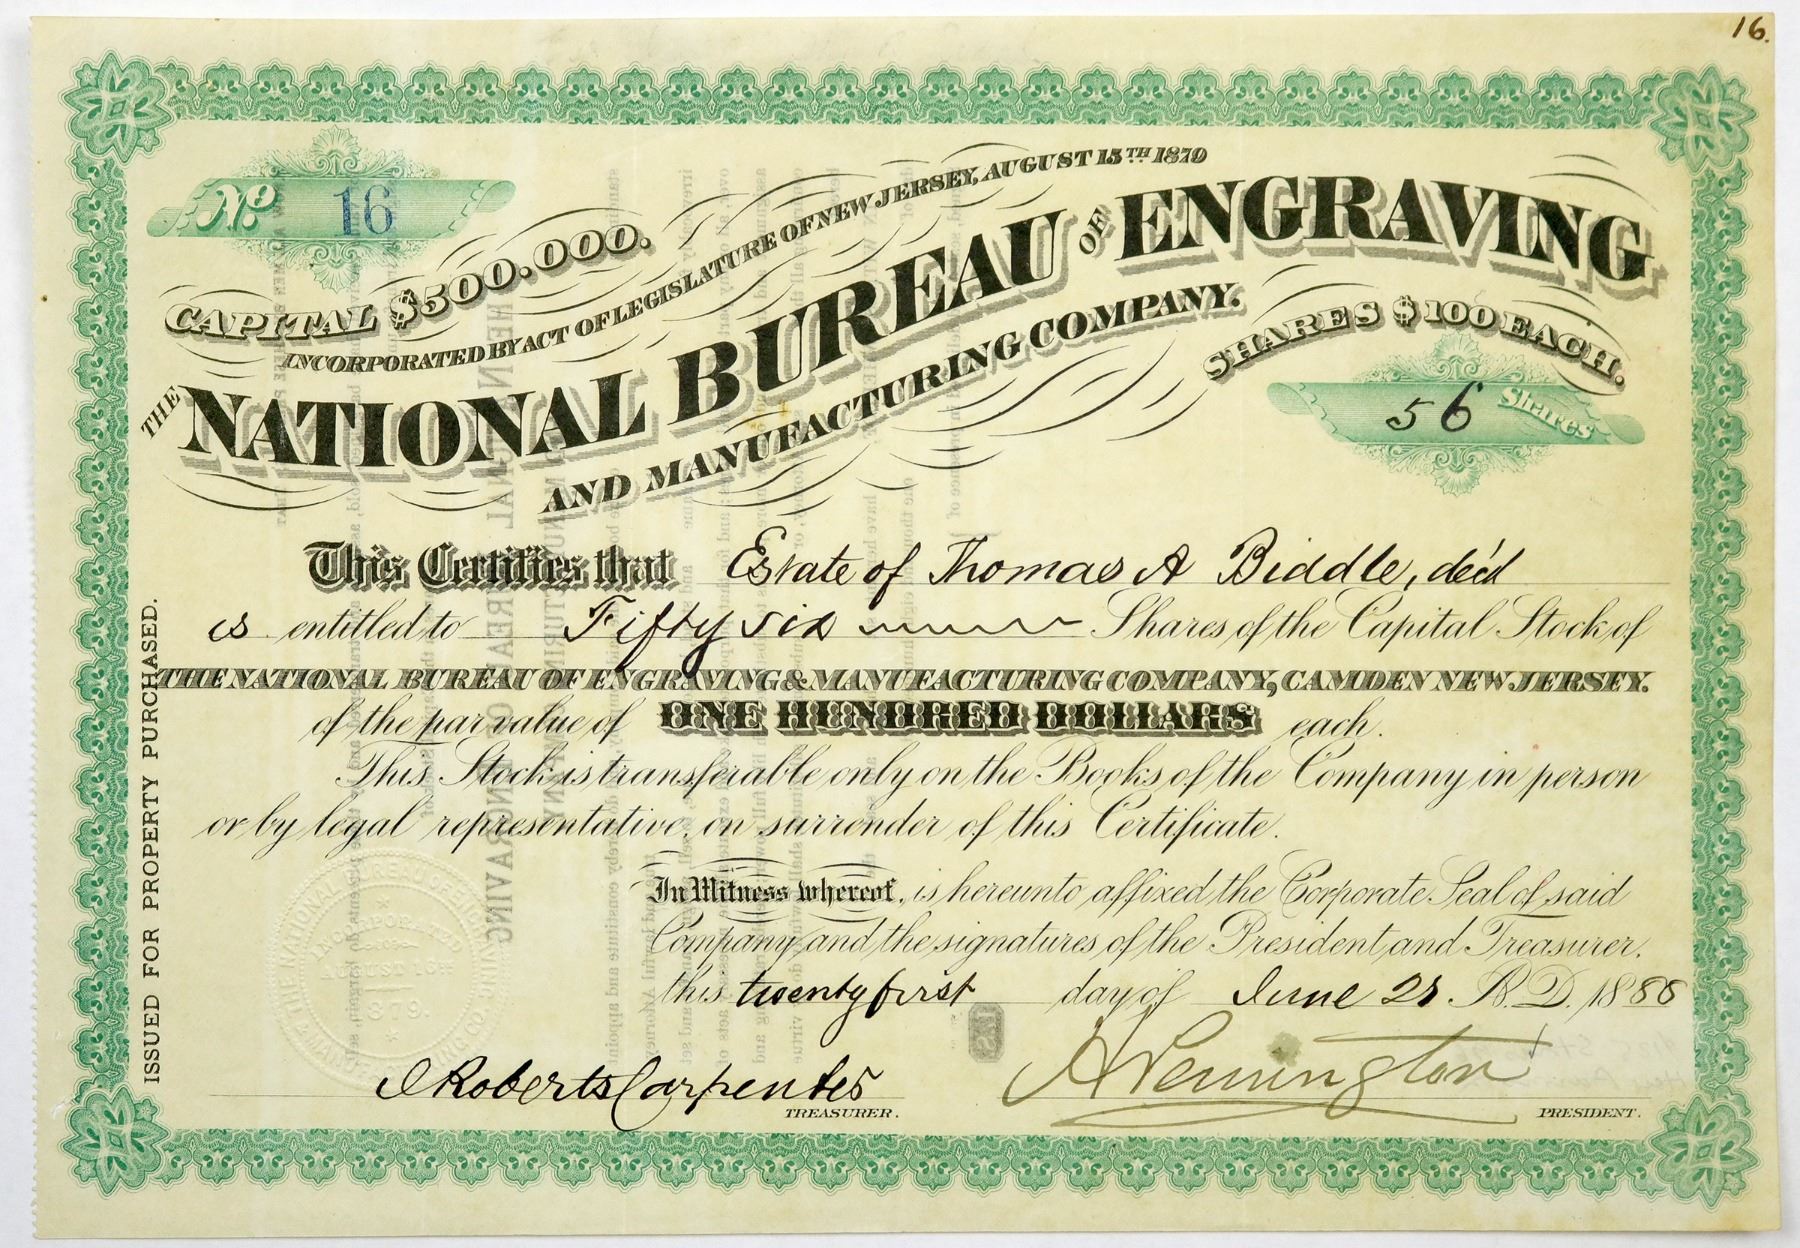 16.
No 16
CAPITAL $500.000.
INCORPORATED BY ACT OF LEGISLATURE OF NEW JERSEY, AUGUST 15TH 1879
THE NATIONAL BUREAU OF ENGRAVING
AND MANUFACTURING COMPANY.
SHARES $100 EACH.
56 Shares
This Certifies that Estate of Thomas A Biddle, dec'd
is entitled to Fifty six Shares of the Capital Stock of
THE NATIONAL BUREAU OF ENGRAVING & MANUFACTURING COMPANY, CAMDEN NEW JERSEY.
of the par value of ONE HUNDRED DOLLARS each.
This Stock is transferable only on the Books of the Company in person
or by legal representative, on surrender of this Certificate.
In Witness whereof, is hereunto affixed the Corporate Seal of said
Company, and the signatures of the President and Treasurer.
this twenty first day of June 21 A.D. 1888
J Roberts Carpenter
TREASURER.
A Pennington
PRESIDENT.
ISSUED FOR PROPERTY PURCHASED.
INCORPORATED
1879